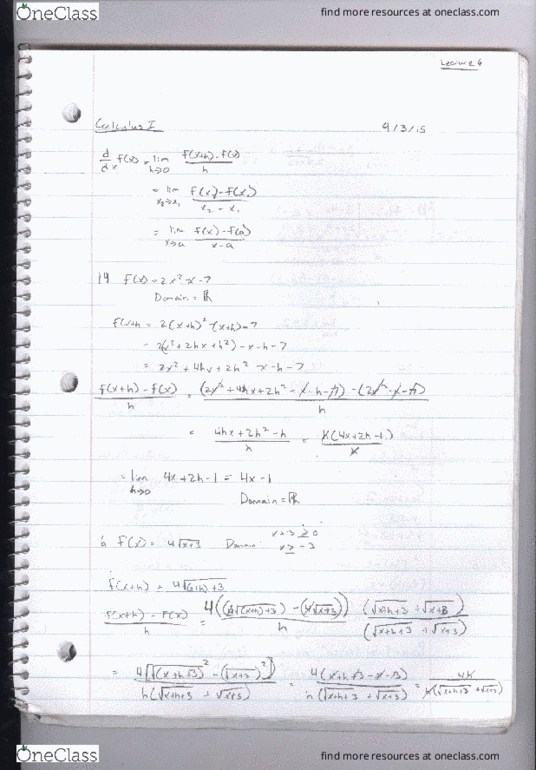 OneClass
find more resources at oneclass.com
Lecture 6
Calculus I 9/3/15
d/dx f(x) = lim h→0 f(x+h) - f(x) / h
= lim x₂→x₁ f(x) - f(x) / x₂ - x₁
= lim x→a f(x) - f(a) / x - a
f(x) = 2x² - x - 7
Domain = ℝ
f(x+h = 2(x+h)² - (x+h) - 7
= 2(x² + 2hx + h²) - x - h - 7
= 2x² + 4hx + 2h² - x - h - 7
f(x+h) - f(x) / h = (2x² + 4hx + 2h² - x - h - 7) - (2x² - x - 7) / h
= 4hx + 2h² - h / h = h(4x + 2h - 1) / h
= lim h→0 4x + 2h - 1 = 4x - 1
Domain = ℝ
f(x) = 4√x+3 Domain: x + 3 ≥ 0
x ≥ -3
f(x+h) = 4√(x+h)+3
f(x+h) - f(x) / h = 4((√(x+h)+3) - (√x+3)) / h (√x+h+3 + √x+3) / (√x+h+3 + √x+3)
= 4[(√(x+h+3)² - (√x+3)²] / h(√x+h+3 + √x+3) = 4(x+h+3-x-3) / h(√x+h+3 + √x+3) = 4h / h(√x+h+3 + √x+3)
OneClass
find more resources at oneclass.com